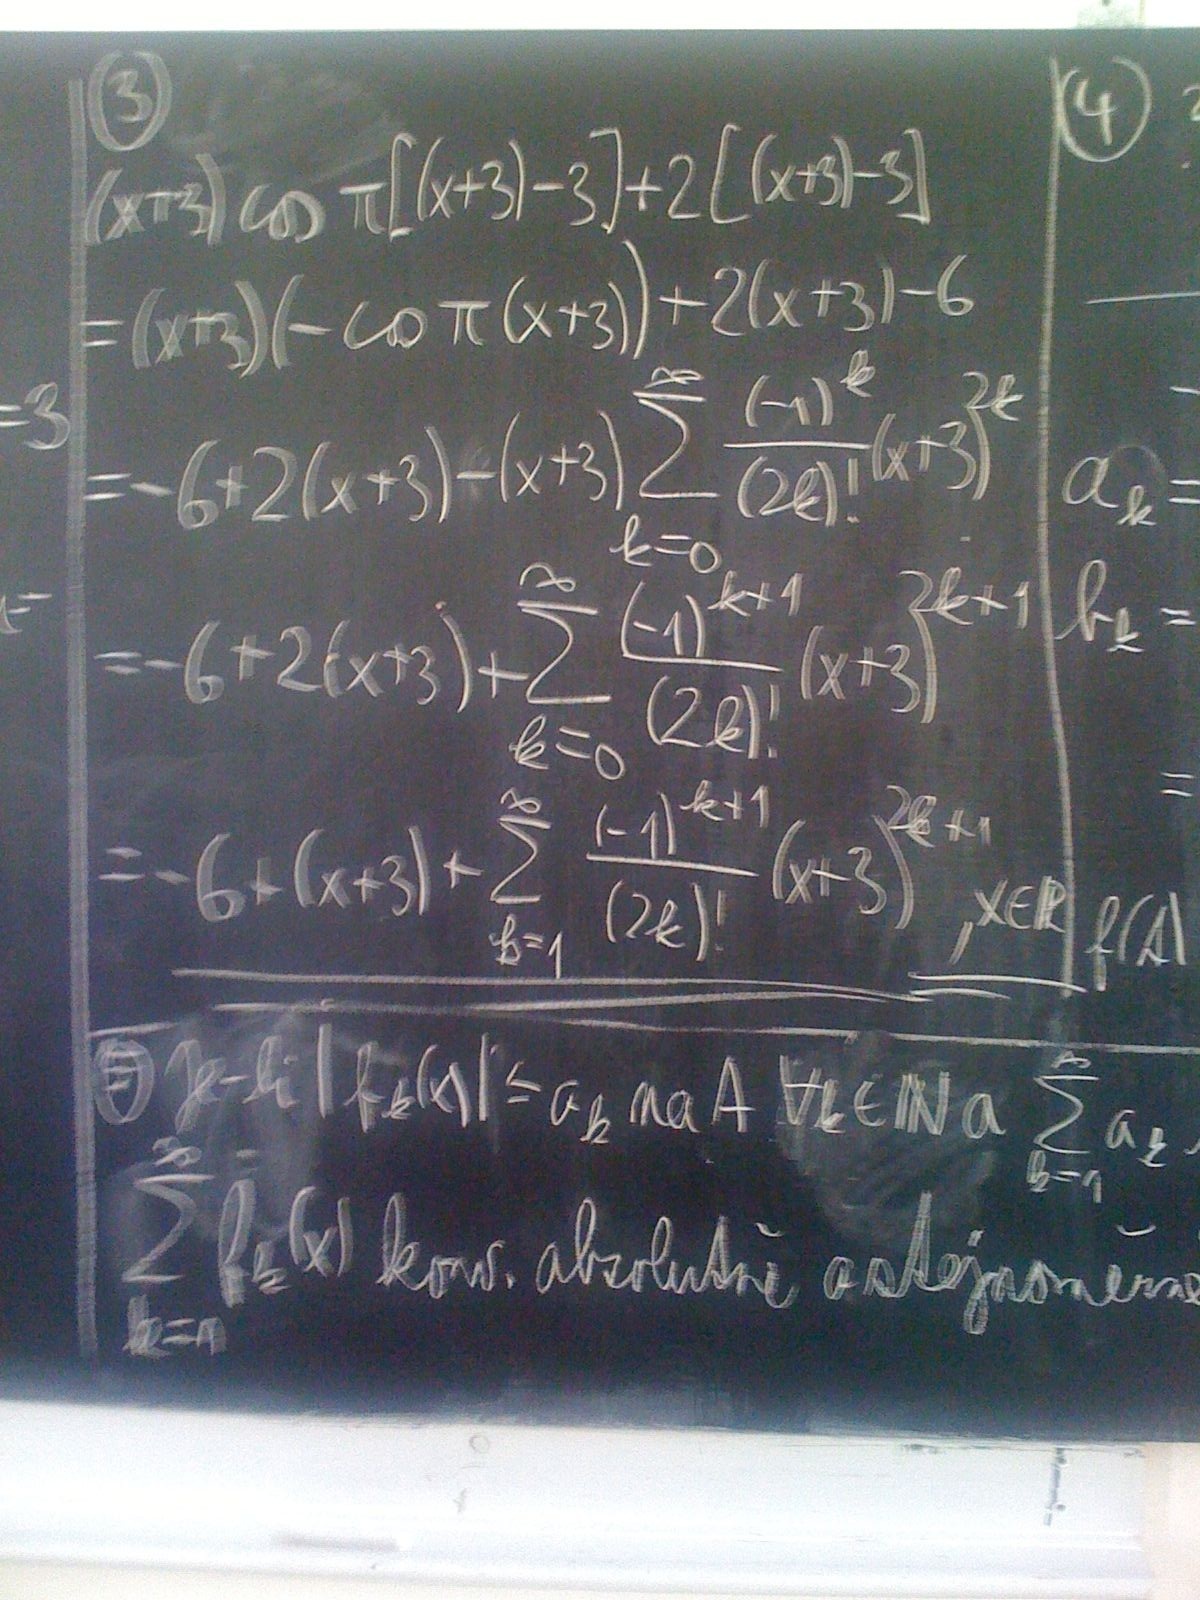 ③
(x+3) cos π[(x+3)-3]+2[(x+3)-3]
=(x+3)(-cos π(x+3))+2(x+3)-6
=-6+2(x+3)-(x+3) ∑_{k=0}^{∞} \frac{(-1)^k}{(2k)!}(x+3)^{2k}
=-6+2(x+3)+∑_{k=0}^{∞} \frac{(-1)^{k+1}}{(2k)!}(x+3)^{2k+1}
=-6+(x+3)+∑_{k=1}^{∞} \frac{(-1)^{k+1}}{(2k)!}(x+3)^{2k+1}, x∈ℝ
Je-li |f_k(x)|≤a_k na A ∀k∈ℕ a ∑_{k=1}^{∞} a_k
∑_{k=1}^{∞} f_k(x) konv. absolutně a stejnoměrně
=3
④
a_k =
b_k =
=
f(A)